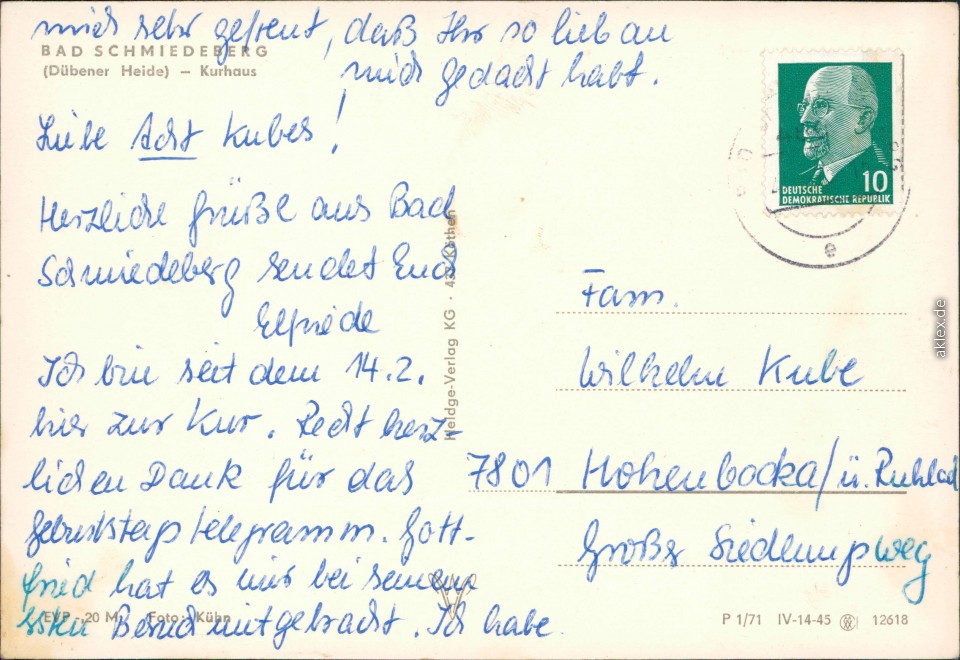 mich sehr gefreut, daß Ihr so lieb an
BAD SCHMIEDEBERG
(Dübener Heide) – Kurhaus
mich gedacht habt.
Liebe Acht Kubes!
Herzliche Grüße aus Bad
Schmiedeberg sendet Euch
Elfriede
Ich bin seit dem 14.2.
hier zur Kur. Recht herz-
lichen Dank für das
Geburtstagstelegramm. Gott-
fried hat es mir bei seinem
Besuch mitgebracht. Ich habe
EVP -,20 M Foto: Kühn
Heldge-Verlag KG · Köthen
10
DEUTSCHE
DEMOKRATISCHE REPUBLIK
e
Fam.
Wilhelm Kube
7801 Hohenbocka/ü. Ruhland
Großer Siedlungsweg
P 1/71 IV-14-45 12618
aklex.de